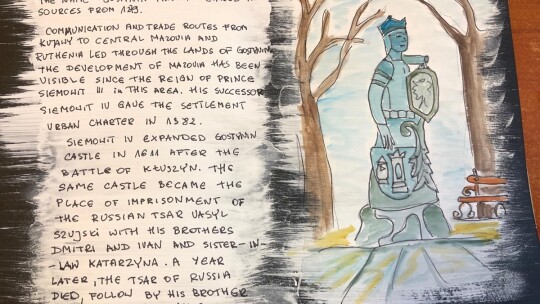 SOURCES FROM 1
COMMUNICATION AND TRADE ROUTES FROM
KUJAWY TO CENTRAL MAZOVIA AND
RUTHENIA LED THROUGH THE LANDS OF GOSTYNIN
THE DEVELOPMENT OF MAZOVIA HAS BEEN
VISIBLE SINCE THE REIGN OF PRINCE
SIEMOWIT III in THIS AREA. HIS SUCCESSOR
SIEMOWIT IV GAVE THE SETTLEMENT
URBAN CHARTER IN 1382.
SIEMOWIT IV EXPANDED GOSTYNIN
CASTLE IN 1611 AFTER THE
BATTLE OF KŁUSZYN. THE
SAME CASTLE BECAME THE
PLACE OF IMPRISONMENT OF
THE RUSSIAN TSAR VASYL
SZUJSKI WITH HIS BROTHERS
DMITRI AND IVAN AND SISTER-IN-
-LAW KATARZYNA. A YEAR
LATER, THE TSAR OF RUSSIA
DIED, FOLLOW BY HIS BROTHER